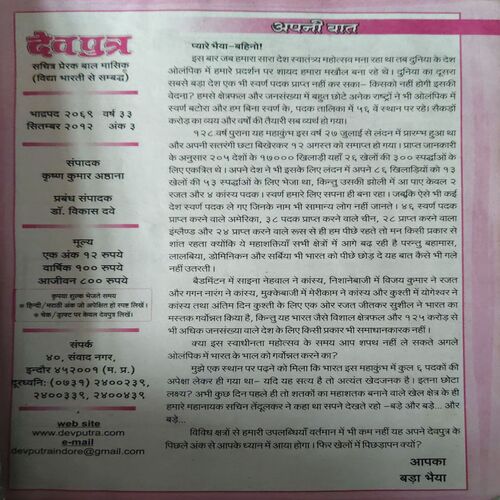 देवपुत्र
सचित्र प्रेरक बाल मासिक
(विद्या भारती से सम्बद्ध)
भाद्रपद २०६९ वर्ष ३३
सितम्बर २०१२ अंक ३
संपादक
कृष्ण कुमार अष्ठाना
प्रबंध संपादक
डॉ. विकास दवे
मूल्य
एक अंक १२ रुपये
वार्षिक १०० रुपये
आजीवन ८०० रुपये
कृपया शुल्क भेजते समय
* हिन्दी/मराठी अंक जो अपेक्षित हो स्पष्ट लिखें।
* चेक/ड्राफ्ट पर केवल देवपुत्र लिखें।
संपर्क
४०, संवाद नगर,
इन्दौर ४५२००१ (म. प्र.)
दूरध्वनि: (०७३१) २४००२३९,
२४००३३९, २४००४३९
web site
www.devputra.com
e-mail
devputraindore@gmail.com
अपनी बात
प्यारे भैया-बहिनो!
इस बार जब हमारा सारा देश स्वातंत्र्य महोत्सव मना रहा था तब दुनिया के देश
ओलंपिक में हमारे प्रदर्शन पर शायद हमारा मखौल बना रहे थे। दुनिया का दूसरा
सबसे बड़ा देश एक भी स्वर्ण पदक प्राप्त नहीं कर सका- किसको नहीं होगी इसकी
वेदना? हमसे क्षेत्रफल और जनसंख्या में बहुत छोटे अनेक राष्ट्रों ने भी ओलंपिक में
स्वर्ण बटोरा और हम बिना स्वर्ण के, पदक तालिका में ५६ वें स्थान पर रहे। सैकड़ों
करोड़ का व्यय और वर्षों की तैयारी सब व्यर्थ हो गया।
१२८ वर्ष पुराना यह महाकुंभ इस वर्ष २७ जुलाई से लंदन में प्रारम्भ हुआ था
और अपनी सतरंगी छटा बिखेरकर १२ अगस्त को समाप्त हो गया। प्राप्त जानकारी
के अनुसार २०५ देशों के १७००० खिलाड़ी यहाँ २६ खेलों की ३०० स्पर्द्धाओं के
लिए एकत्रित थे। अपने देश ने भी इसके लिए लंदन में अपने ८६ खिलाड़ियों को १३
खेलों की ५३ स्पर्द्धाओं के लिए भेजा था, किन्तु उसकी झोली में आ पाए केवल २
रजत और ४ कांस्य पदक। स्वर्ण हमारे लिए सपना ही बना रहा। जबकि ऐसे भी कई
देश स्वर्ण पदक ले गए जिनके नाम भी सामान्य लोग नहीं जानते। ४६ स्वर्ण पदक
प्राप्त करने वाले अमेरिका, ३८ पदक प्राप्त करने वाले चीन, २८ प्राप्त करने वाला
इंग्लैण्ड और २४ प्राप्त करने वाले रूस से ही हम पीछे रहते तो मन किसी प्रकार से
शांत रहता क्योंकि ये महाशक्तियाँ सभी क्षेत्रों में आगे बढ़ ही रही है परन्तु बाहमास,
लालबिया, डोमिनिकन और सर्बिया भी भारत को पीछे छोड़ दे यह बात कैसे भी गले
नहीं उतरती।
बैडमिंटन में साइना नेहवाल ने कांस्य, निशानेबाजी में विजय कुमार ने रजत
और गगन नारंग ने कांस्य, मुक्केबाजी में मेरीकाम ने कांस्य और कुश्ती में योगेश्वर ने
कांस्य तथा अंतिम दिन कुश्ती के लिए एक ओर रजत जीतकर सुशील ने भारत का
मस्तक गर्वोन्नत किया है, किन्तु यह भारत जैसे विशाल क्षेत्रफल और १२५ करोड़ से
भी अधिक जनसंख्या वाले देश के लिए किसी प्रकार भी समाधानकारक नहीं।
क्या इस स्वाधीनता महोत्सव के समय आप शपथ नहीं ले सकते अगले
ओलंपिक में भारत के भाल को गर्वोन्नत करने का?
मुझे एक स्थान पर पढ़ने को मिला कि भारत इस महाकुंभ में कुल ६ पदकों की
अपेक्षा लेकर ही गया था- यदि यह सत्य है तो अत्यंत खेदजनक है। इतना छोटा
लक्ष्य? अभी कुछ दिन पहले ही तो शतकों का महाशतक बनाने वाले खेल क्षेत्र के ही
हमारे महानायक सचिन तेंदूलकर ने कहा था सपने देखते रहो -बड़े और बड़े... और
बड़े...
विविध क्षेत्रों से हमारी उपलब्धियाँ वर्तमान में भी कम नहीं यह अपने देवपुत्र के
पिछले अंक से आपके ध्यान में आया होगा। फिर खेलों में पिछड़ापन क्यों?
आपका
बड़ा भैया